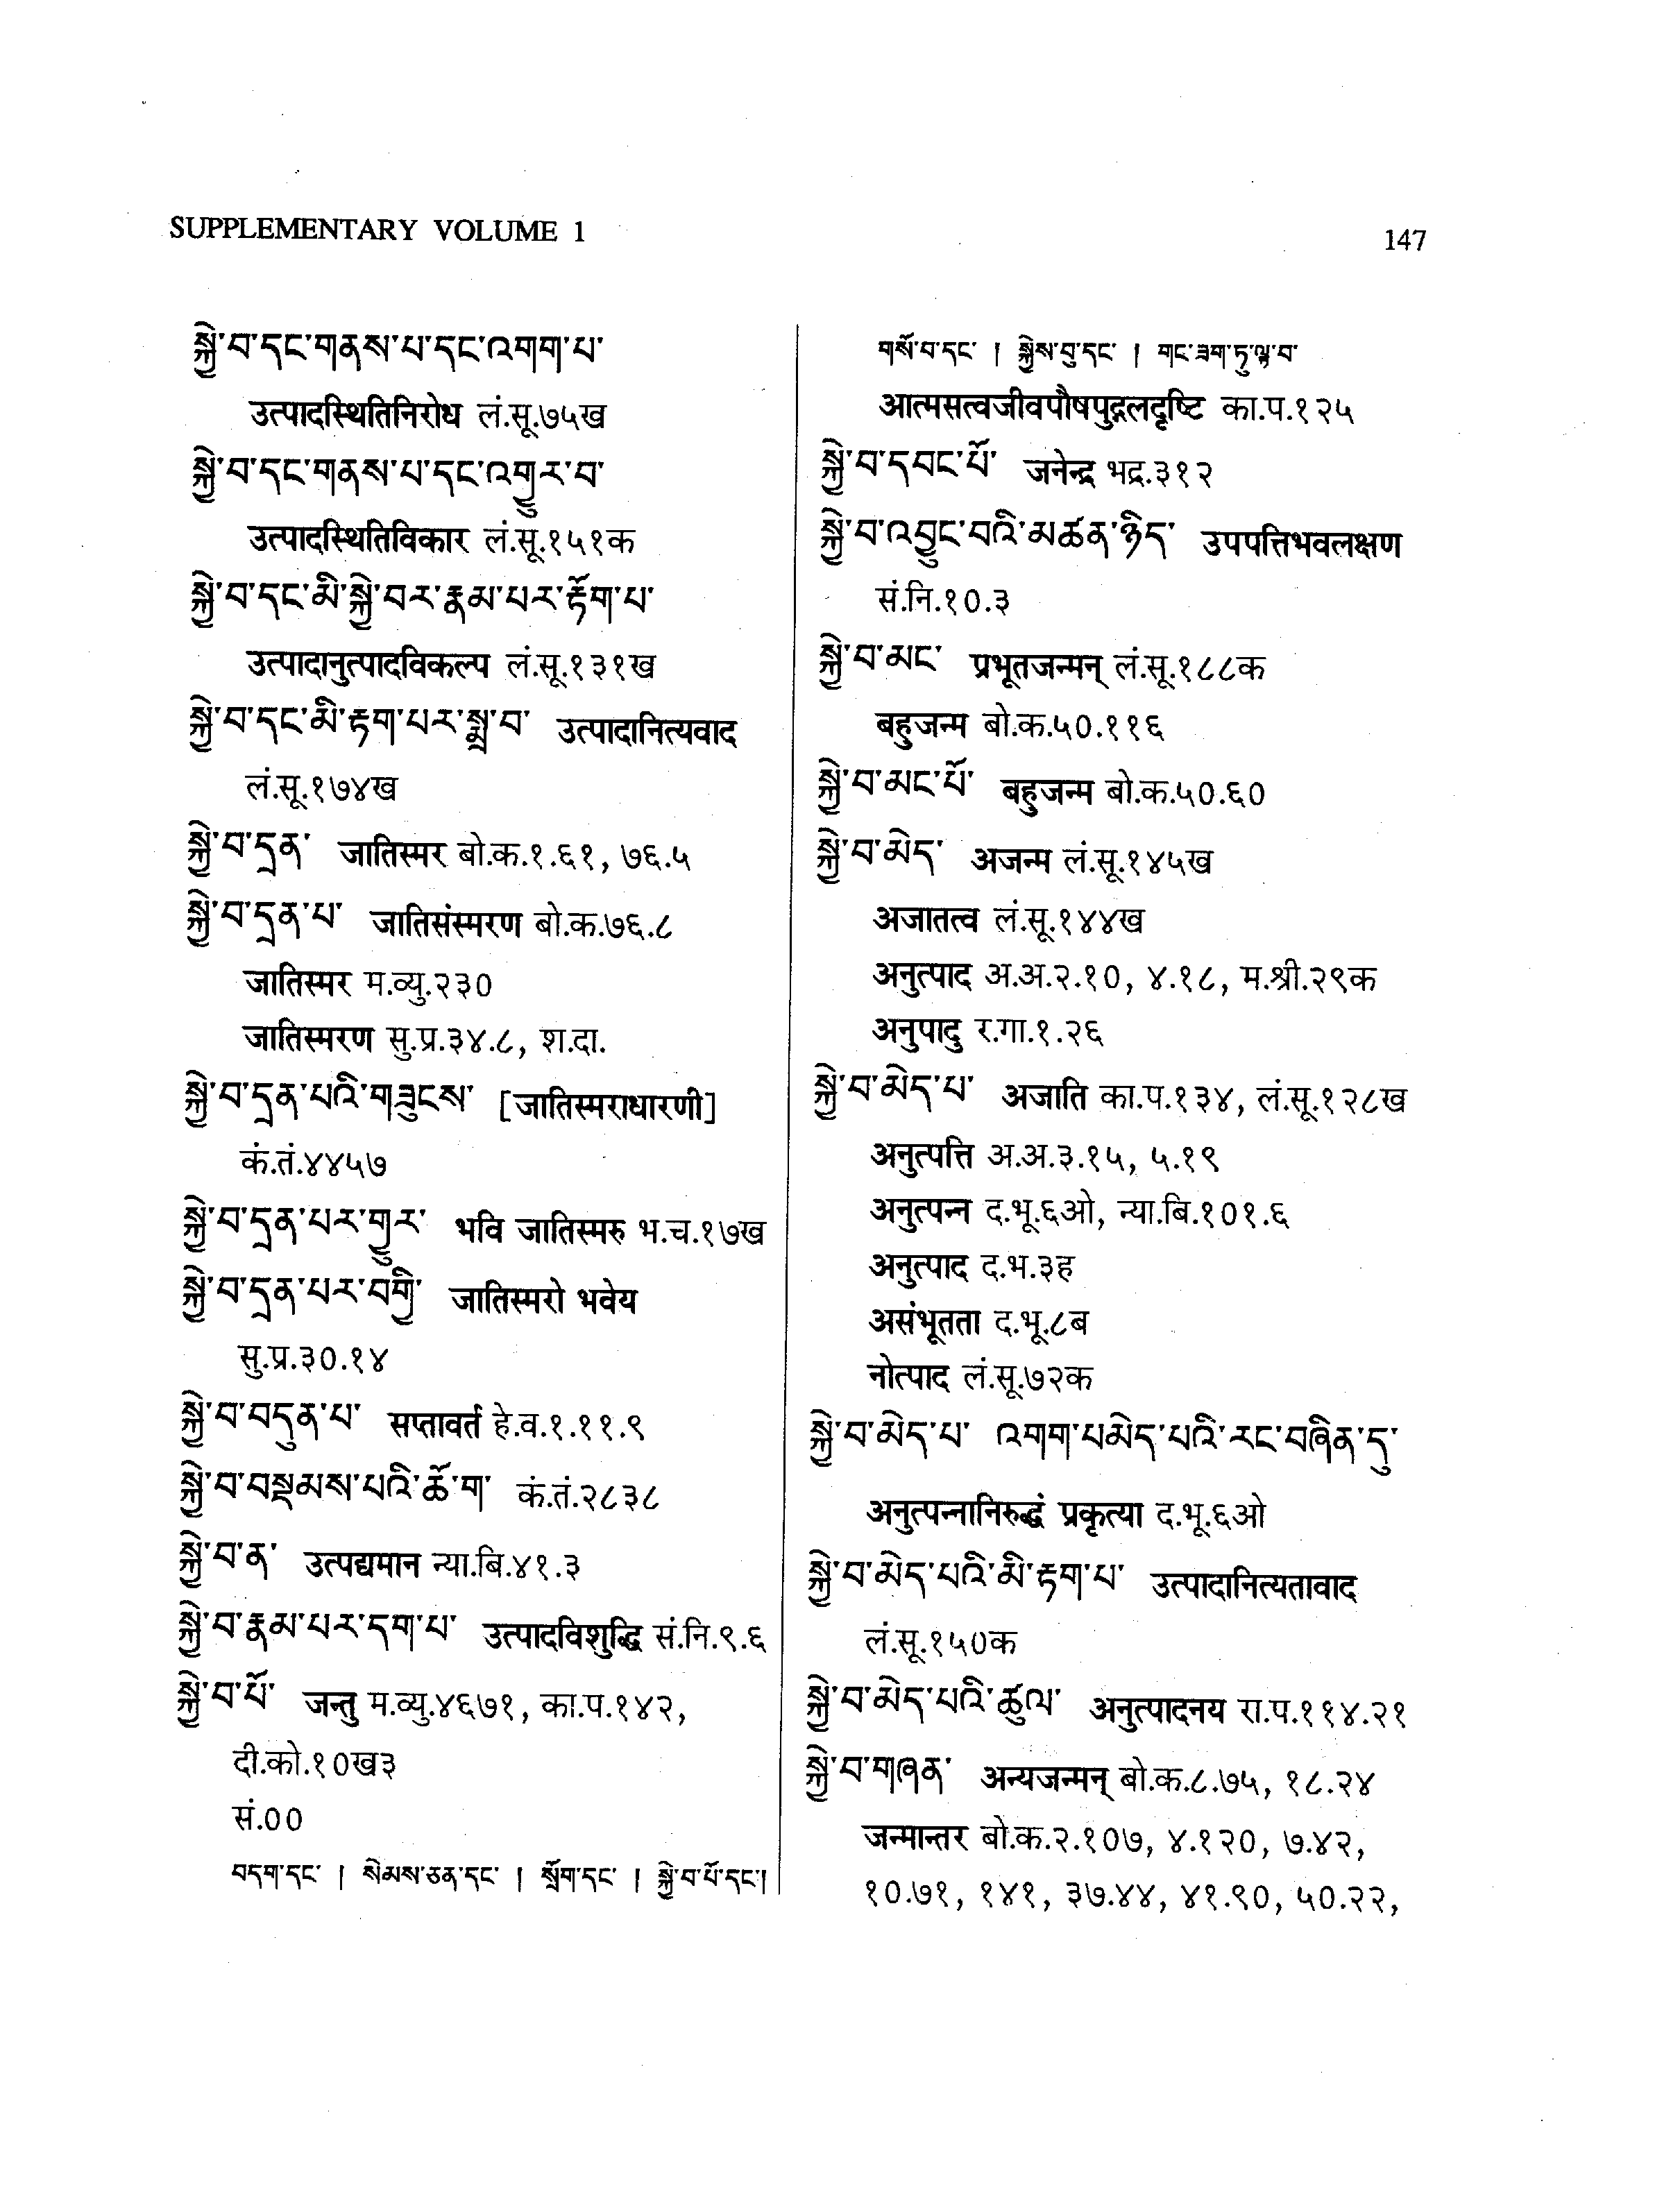 SUPPLEMENTARY VOLUME 1
147
སྐྱེ་བ་དང་གནས་པ་དང་འགག་པ་
उत्पादस्थितिनिरोध लं.सू.७५ख
སྐྱེ་བ་དང་གནས་པ་དང་འགྱུར་བ་
उत्पादस्थितिविकार लं.सू.१५१क
སྐྱེ་བ་དང་མི་སྐྱེ་བར་རྣམ་པར་རྟོག་པ་
उत्पादानुत्पादविकल्प लं.सू.१३१ख
སྐྱེ་བ་དང་མི་རྟག་པར་སྨྲ་བ་ उत्पादानित्यवाद
लं.सू.१७४ख
སྐྱེ་བ་དྲན་ जातिस्मर बो.क.१.६१, ७६.५
སྐྱེ་བ་དྲན་པ་ जातिसंस्मरण बो.क.७६.८
जातिस्मर म.व्यु.२३०
जातिस्मरण सु.प्र.३४.८, श.दा.
སྐྱེ་བ་དྲན་པའི་གཟུངས་ [जातिस्मराधारणी]
कं.तं.४४५७
སྐྱེ་བ་དྲན་པར་གྱུར་ भवि जातिस्मरु भ.च.१७ख
སྐྱེ་བ་དྲན་པར་བགྱི་ जातिस्मरो भवेय
सु.प्र.३०.१४
སྐྱེ་བ་བདུན་པ་ सप्तावर्त हे.व.१.११.९
སྐྱེ་བ་བསྡམས་པའི་ཆོ་ག་ कं.तं.२८३८
སྐྱེ་བ་ན་ उत्पद्यमान न्या.बि.४१.३
སྐྱེ་བ་རྣམ་པར་དག་པ་ उत्पादविशुद्धि सं.नि.९.६
སྐྱེ་བ་པོ་ जन्तु म.व्यु.४६७१, का.प.१४२,
दी.को.१०ख३
सं.००
བདག་དང་ ། སེམས་ཅན་དང་ ། སྲོག་དང་ ། སྐྱེ་བ་པོ་དང་།
གསོ་བ་དང་ ། སྐྱེས་བུ་དང་ ། གང་ཟག་ཏུ་ལྟ་བ་
आत्मसत्वजीवपौषपुद्गलदृष्टि का.प.१२५
སྐྱེ་བ་དབང་པོ་ जनेन्द्र भद्र.३१२
སྐྱེ་བ་འབྱུང་བའི་མཚན་ཉིད་ उपपत्तिभवलक्षण
सं.नि.१०.३
སྐྱེ་བ་མང་ प्रभूतजन्मन् लं.सू.१८८क
बहुजन्म बो.क.५०.११६
སྐྱེ་བ་མང་པོ་ बहुजन्म बो.क.५०.६०
སྐྱེ་བ་མེད་ अजन्म लं.सू.१४५ख
अजातत्व लं.सू.१४४ख
अनुत्पाद अ.अ.२.१०, ४.१८, म.श्री.२९क
अनुपादु र.गा.१.२६
སྐྱེ་བ་མེད་པ་ अजाति का.प.१३४, लं.सू.१२८ख
अनुत्पत्ति अ.अ.३.१५, ५.१९
अनुत्पन्न द.भू.६ओ, न्या.बि.१०१.६
अनुत्पाद द.भ.३ह
असंभूतता द.भू.८ब
नोत्पाद लं.सू.७२क
སྐྱེ་བ་མེད་པ་ འགག་པམེད་པའི་རང་བཞིན་དུ་
अनुत्पन्नानिरुद्धं प्रकृत्या द.भू.६ओ
སྐྱེ་བ་མེད་པའི་མི་རྟག་པ་ उत्पादानित्यतावाद
लं.सू.१५०क
སྐྱེ་བ་མེད་པའི་ཚུལ་ अनुत्पादनय रा.प.११४.२१
སྐྱེ་བ་གཞན་ अन्यजन्मन् बो.क.८.७५, १८.२४
जन्मान्तर बो.क.२.१०७, ४.१२०, ७.४२,
१०.७१, १४१, ३७.४४, ४१.९०, ५०.२२,